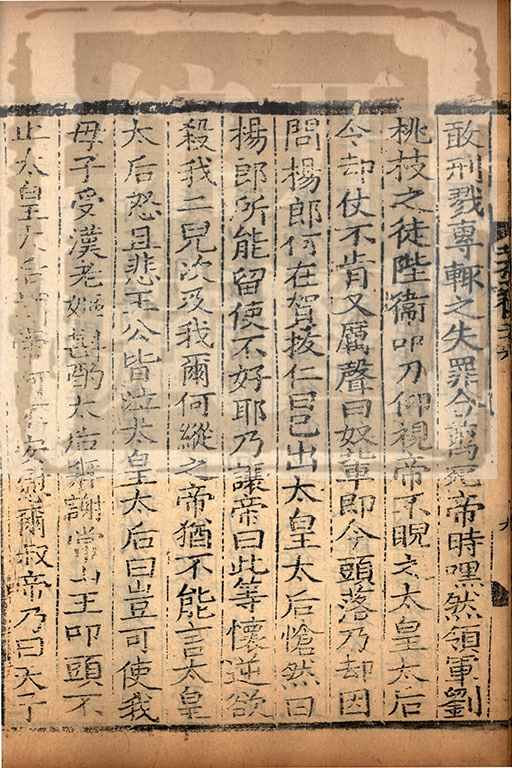 敢刑戮專輒之失罪合萬死帝時嘿然領軍劉
桃枝之徒陛衞叩刀仰視帝不睨之太皇太后
令却仗不肯又厲聲曰奴輩即今頭落乃却因
問楊郎何在賀拔仁曰已出太皇太后愴然曰
楊郎所能留使不好耶乃讓帝曰此等懷逆欲
殺我二兒次及我爾何縱之帝猶不能言太皇
太后怒且悲王公皆泣太皇太后曰豈可使我
母子受漢老嫗斟酌太后拜謝常山王叩頭不
止太皇太后謂帝何不安慰爾叔帝乃曰天子